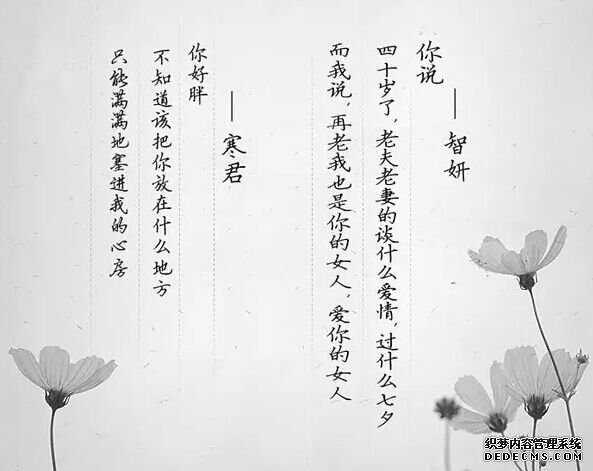 你说
——智妍
四十岁了，老夫老妻的谈什么爱情，过什么七夕
而我说，再老我也是你的女人，爱你的女人
——寒君
你好胖
不知道该把你放在什么地方
只能满满地塞进我的心房
织梦内容管理系统
DEDECMS.COM